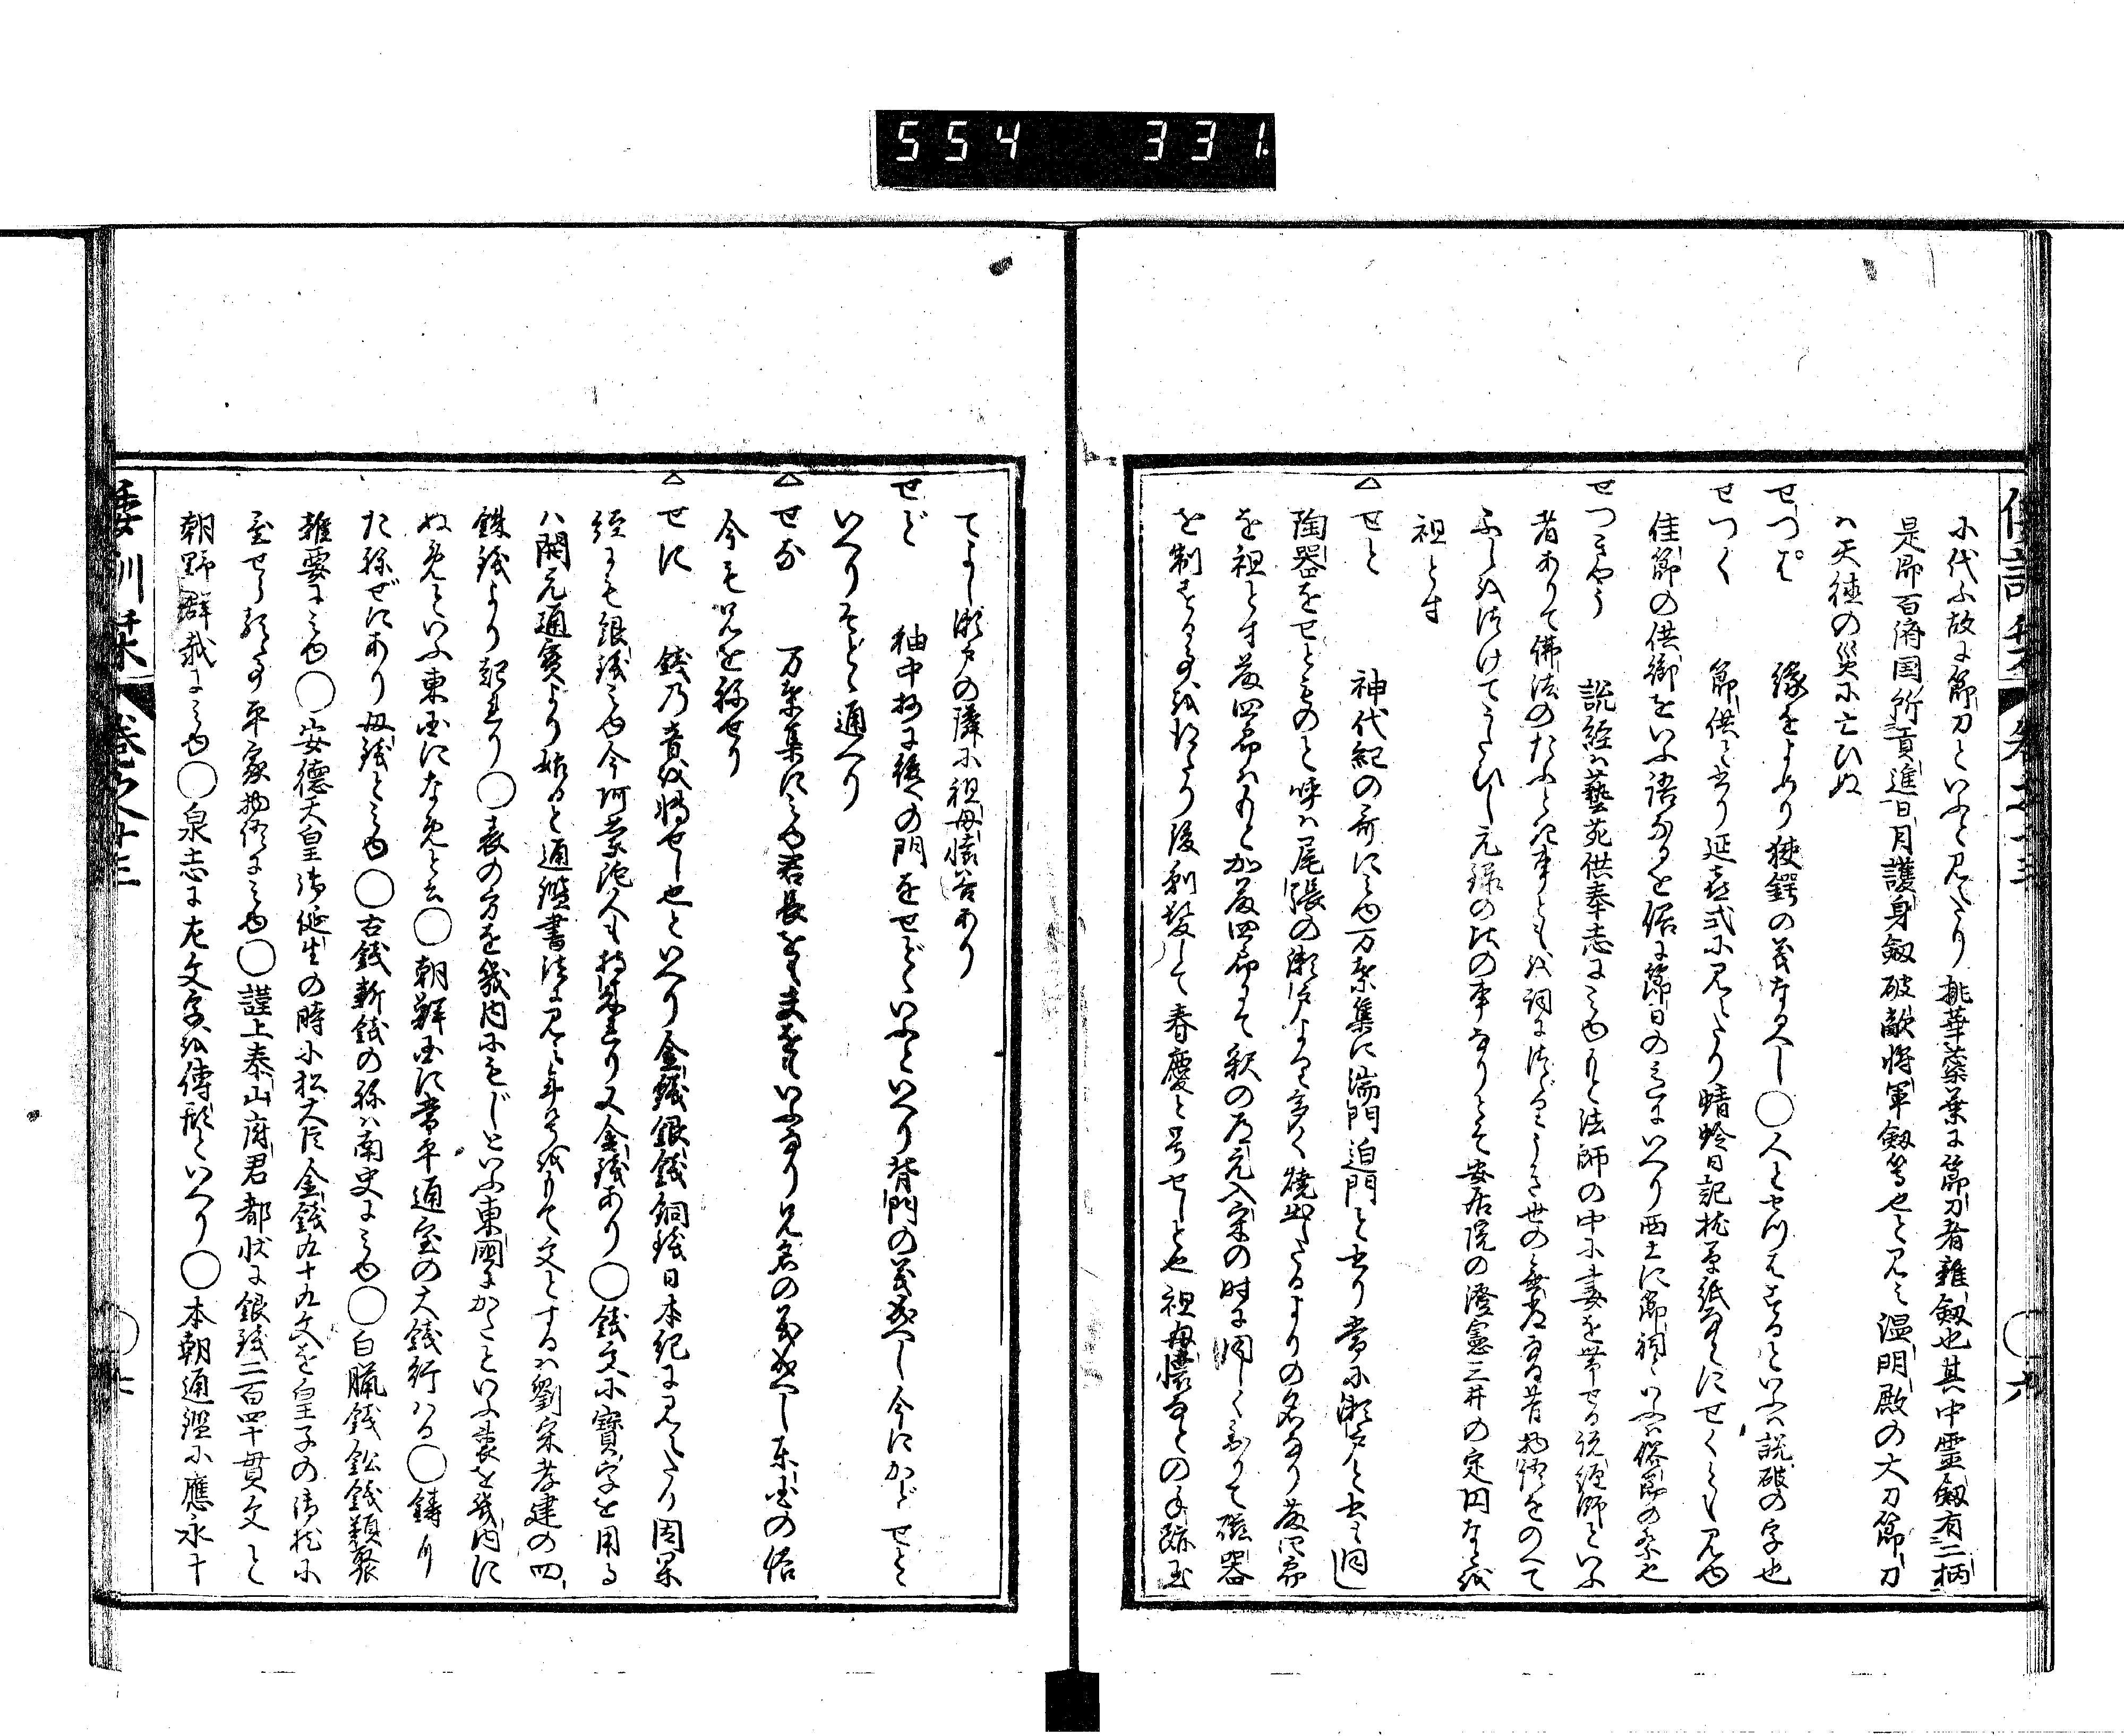 554 331.
倭訓栞 巻之廿三 ○六
に代ふ故に節刀といふと見えたり 桃華蘂葉に節刀者雜劔也其中霊劔有二柄
是即百済国所貢進日月護身劔破敵将軍劔等也と見ゆ温明殿の大刀節刀
ハ天徳の災に亡ひぬ
せつは 縁をよめり狭鍔の義なるへし○人とせつはするといふハ説破の字也
せつく 節供と書り延喜式に見えたり蜻蛉日記枕草紙なとにせくとも見ゆ
佳節の供御をいふ語なるを俗に節日の に いへり西土に節祠といふハ俗節の祭也
せつきやう 説経ハ藝苑供奉志にみゆもと法師の中に妻を帯せる説経師といふ
者ありて佛法のたふとき事ともを詞につゝりうき世の無常なる昔物語をのへて
ふしをつけてうたひし元緑の比の事なりとそ安居院の澄憲三井の定円なとを
祖とす
△せと 神代紀の哥にみゆ万葉集に湍門迫門と書り常に瀬戸と書も同し
陶器をせとものと呼ハ尾張の瀬戸より多く焼出したるよりの名なり藤四郎
を祖とす藤四郎ハもと加藤四郎にて釈の道元入宋の時に同しく参りて磁器
を制する事を たり後剃髪して春慶と号せしとや祖母懐なとの手跡玉
てよし瀬戸の隣に祖母懐谷あり
せど 袖中抄に後の門をせどゝいふといへり背門の義成へし今にかどせと
いへりそとゝ通へり
△せな 万葉集にみゆ君長をも夫をもいふなり兄名の義成へし東国の俗
今も兄を称せり
△せに 銭乃音を轉せし也といへり金銭銀銭銅銭日本紀に見えたり因果
経にも銀銭みゆ今阿蘭陀人も持来れり又金銭あり○銭文に寶字を用る
ハ開元通寳より始ると通鑑書法に見ゆ年号をもて文とするハ劉宋孝建の四
銖銭より起れり○表の方を畿内にもじといふ東国にかたといふ裏を畿内に
ぬめといふ東国になめと云○朝鮮国に常平通宝の大銭行ハる○鋳り
た称ぜにあり母銭とみゆ○古銭新銭の称ハ南史にみゆ○白鑞銭鉛銭類聚
雜要にみゆ○安徳天皇御誕生の時小松大臣金銭九十九文を皇子の御枕に
置せらるゝ事平家物語にみゆ○謹上泰山府君都状に銀銭二百四十貫文と
朝野群載にみゆ○泉志に左文字を傳形といへり○本朝通鑑に應永十
倭訓栞 巻之廿三 ○七